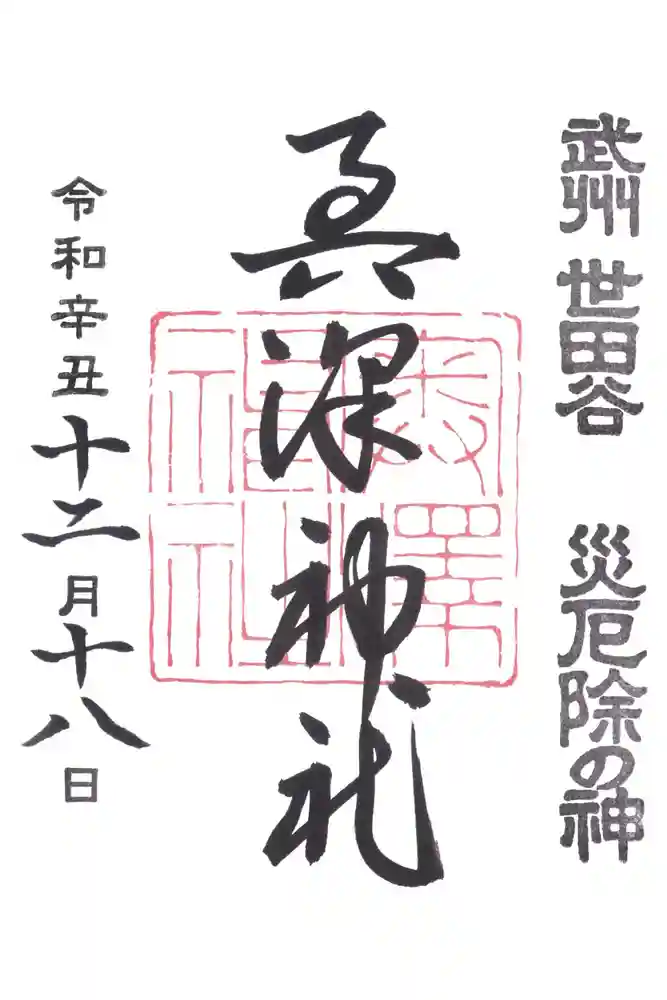 武州 世田谷 災厄除の神
奥澤神社
奥澤
神社
令和辛丑十二月十八日